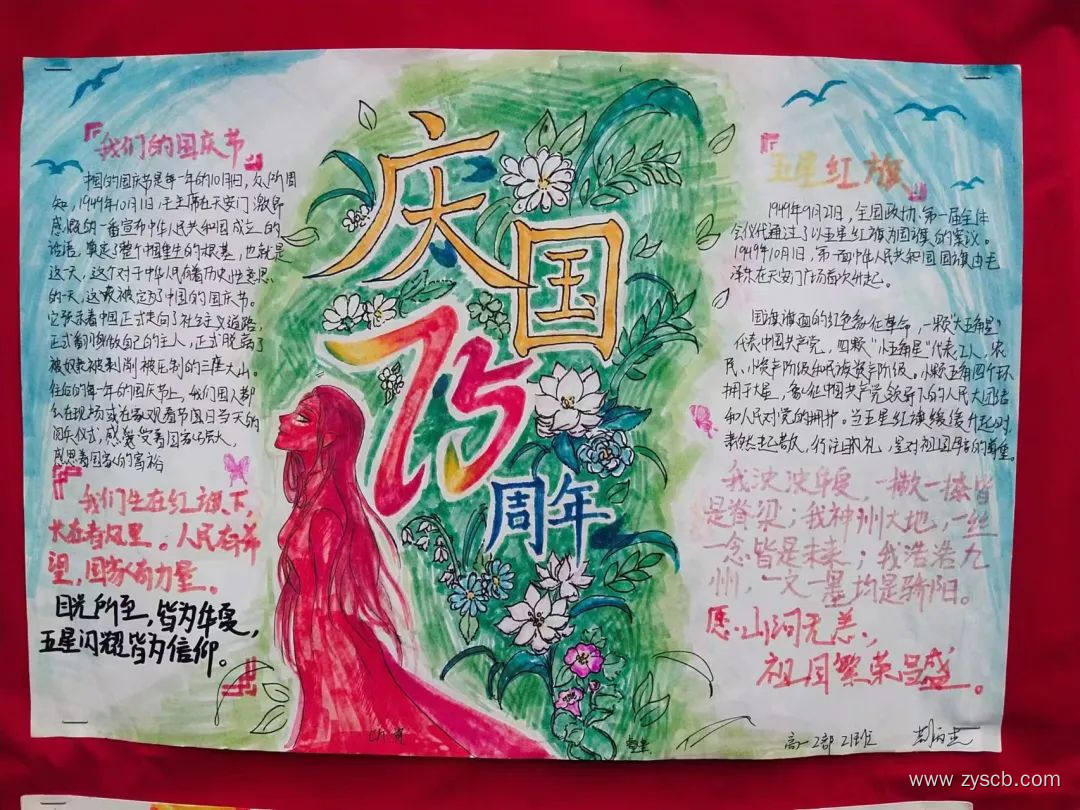 我们的国庆节
中国的国庆节是每一年的10月1日，众所周
知，1949年10月1日，毛主席在天安门激昂
感慨的一番宣布中华人民共和国成立的
话语，奠定了整个中国重生的根基，也就是
这一天，这个对于中华人民有着历史性意思
的一天，这最被定为了中国的国庆节。
它预示着中国正式走向了社会主义道路，
正式翻身做自己的主人，正式脱离了
被奴隶被剥削被压制的三座大山。
往后的每一年的国庆节上，我们国人都
会在现场或在家观看节国日当天的
阅兵仪式，感受着国家的强大，
感恩着国家的富裕
我们生在红旗下，
长在春风里。人民有希
望，国家有力量。
目光所至，皆为华夏，
五星闪耀皆为信仰。
庆
国
75
周年
五星红旗
1949年9月27日，全国政协第一届全体
会议代通过了以五星红旗为国旗的案议。
1949年10月1日，第一面中华人民共和国国旗由毛
泽东在天安门广场首次升起。
国旗旗面的红色象征革命，一颗“大五角星”
代表中国共产党，四颗“小五角星”代表工人，农
民，小资产阶级和民族资产阶级。小颗五角四个环
拥于大星，象征中国共产党领导下的人民大团结
和人民对党的拥护。当五星红旗缓缓升起时，
肃然起
行注目礼，是对祖国母亲的尊重。
我泱泱华夏，一撇一捺皆
是脊梁；我神州大地，一丝
一念皆是未来；我浩浩九
州，一文一墨均是骄阳。
愿山河无恙，
祖国繁荣昌盛。
高一2部21班
www.zyscb.com